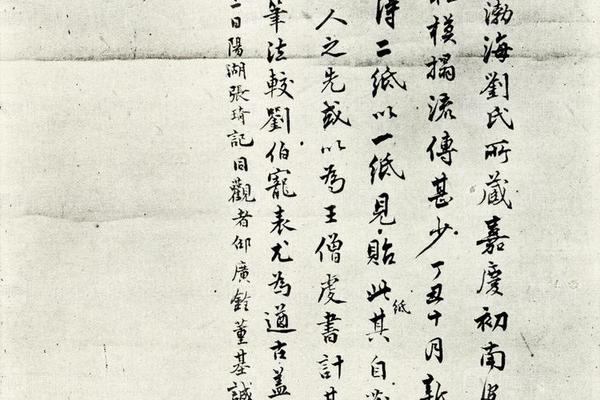 渤海劉氏所藏嘉慶初南
模搨流傳甚少丁丑十月新
得二紙以一紙見貽此紙其自
人之先或以為王僧虔書計其
筆法較劉伯寵表尤為遒古蓋
二日陽湖張琦記同觀者仰廣銓董基誠